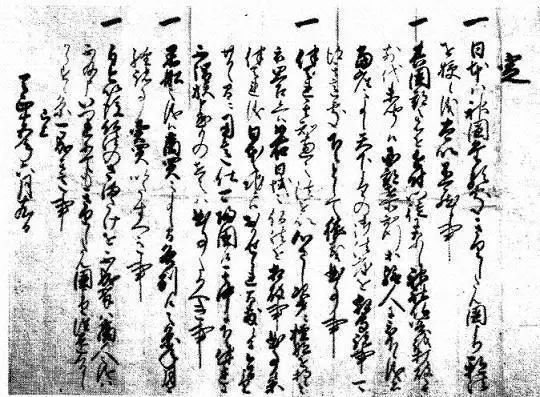 定
一日本ハ神国たる処きりしたん国より邪法
を授候儀太以不可然候事
一其国郡之者を近付門徒になし神社仏閣を打破之
由前代未聞候国郡在所知行等給人に被下候儀者
当座之事候天下よりの御法度を相守諸事可
得其意処下々として猥義曲事事
一伴天連其知恵之法を以心さし次第ニ檀那を
持候と被思召候へハ如右日域之仏法を相破事曲事候条
伴天連儀日本之地ニハおかせられ間敷候間今日より
廿日之間ニ用意仕可帰国候其中に下々伴天連
に不謂族申懸もの在之ハ曲事たるへき事
一黒船之儀ハ商買之事候間各別候之条年月を
経諸事売買いたすへき事
一自今以後仏法のさまたけを不成輩ハ商人之儀ハ
不及申いつれにてもきりしたん国より往還くるし
からす候条可成其意事
已上
天正十五年六月十九日